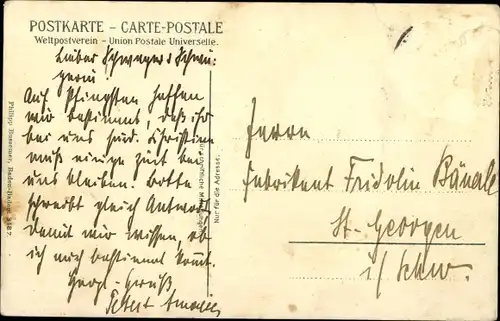 POSTKARTE – CARTE-POSTALE
Weltpostverein – Union Postale Universelle.
Lieber Schwager & Schwä-
gerin
Auf Pfingsten hoffen
wir bestimmt, daß ihr
bei uns seid. Christine
muß einige Zeit bei
uns bleiben. Bitte
schreibt gleich Antwort
damit wir wissen, ob
ihr auch bestimmt kommt.
Herzl. Gruß
Philipp Bussemer, Baden-Baden 3187.
Nur für die Adresse.
Herrn
Fabrikant Fridolin
St. Georgen
i/Schw.